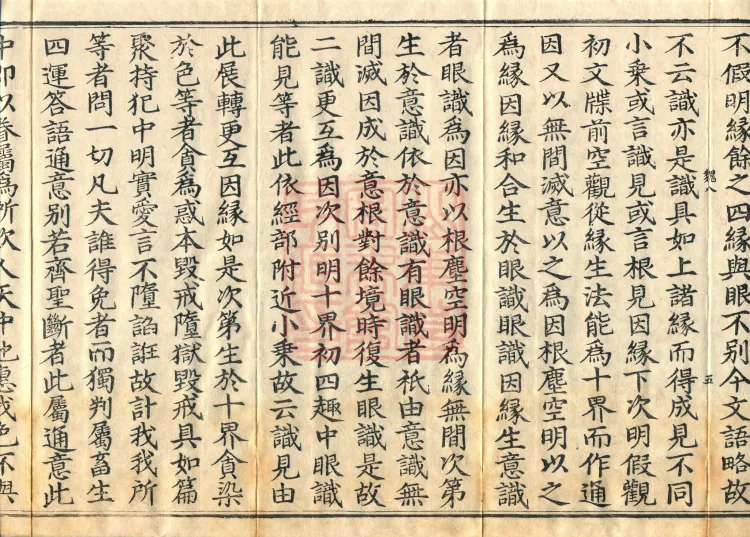 不假明緣餘之四緣與眼不別今文語略故
不云識亦是識具如上諸緣而得成見不同
小乗或言識見或言根見因緣下次明假觀
初文牒前空觀從緣生法能爲十界而作通
因又以無間滅意以之爲因根塵空明以之
爲緣因緣和合生於眼識眼識因緣生意識
者眼識爲因亦以根塵空明爲緣無間次第
生於意識依於意識有眼識者祇由意識無
間滅因成於意根對餘境時復生眼識是故
二識更互爲因次別明十界初四趣中眼識
能見等者此依經部附近小乗故云識見由
此展轉更互因緣如是次第生於十界貪染
於色等者貪爲惑本毀戒墮獄毀戒具如篇
聚持犯中明實愛言不墮諂誑故計我我所
等者問一切凡夫誰得免者而獨判屬畜生
四運答語通意別若齊聖斷者此屬通意此
中卽以眷屬爲所次人天中也憙我色不與
五